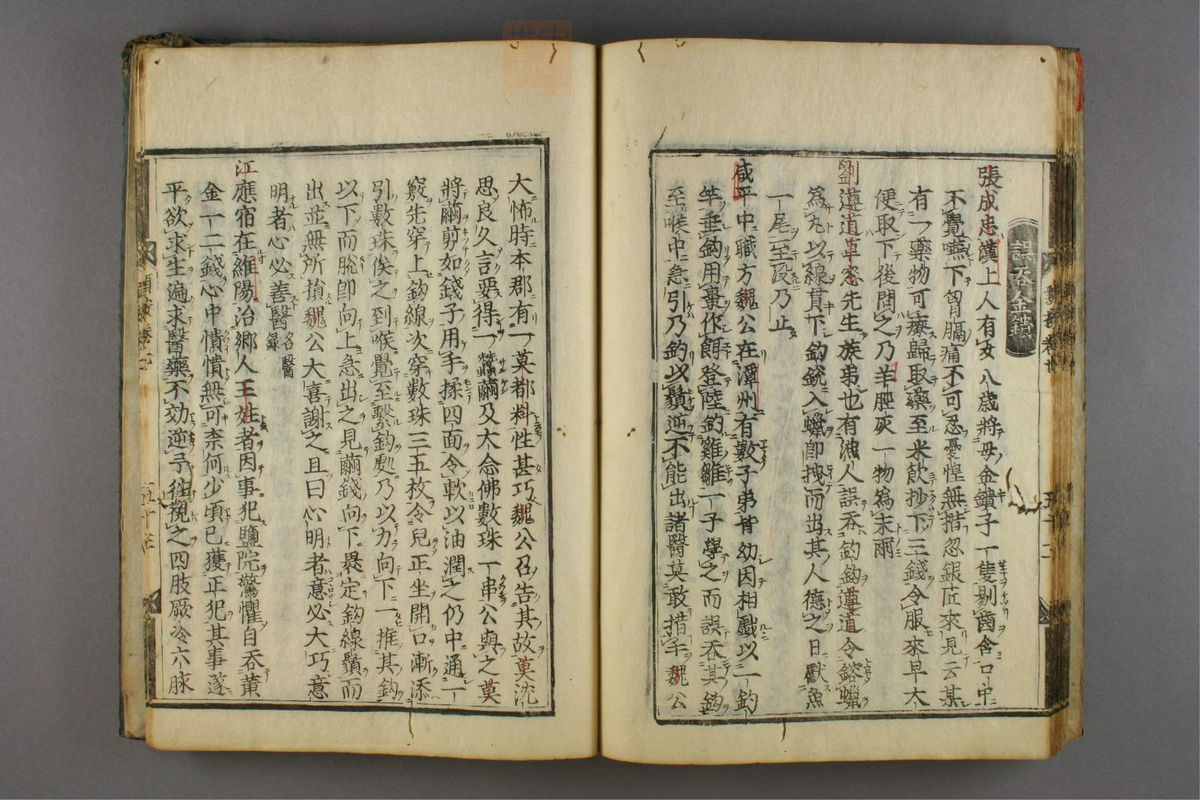 誤吞金鐵
張成忠漢上人有女八歳將母金鐀子一隻剔齒含口中
不覺嚥下胷膈痛不可忍憂惶無措忽銀匠來見云某
有一藥物可療歸取藥至米飲抄下三錢令服來早大
便取下後問之乃羊脛灰一物為末爾
劉遵道草窓先生族弟也有漁人誤吞釣鈎遵道令鎔蠟
為丸以線貫下鈎銳入蠟即拽而出其人德之日獻魚
一尾至歿乃止
咸平中職方魏公在潭州有數子弟皆幼因相戲以一釣
竿垂鈎用棗作餌登陸釣雞雛一子學之而誤吞其鈎
至喉中急引乃釣以鬚逆不能出諸醫莫敢措手魏公
大怖時本郡有一莫都料性甚巧魏公召告其故莫沈
思良久言要得一蠶繭及大念佛數珠一串公與之莫
將繭剪如錢子用手揉四面令軟以油潤之仍中通一
竅先穿上鈎線次穿數珠三五枚令兒正坐開口漸添
引數珠俟之到喉覺至繫鈎處乃以力向下一推其鈎
以下而脫卽向上急出之見繭錢向下暴定鈎線鬚而
出並無所損魏公大喜謝之且曰心明者意必大巧意
明者心必善醫名醫錄
江應宿在維陽治鄉人王姓者因事犯鹽院驚懼自吞黃
金一二錢心中憒憒無可柰何少頃已獲正犯其事遂
平欲求生遍求醫藥不効逆予往視之四肢厥冷六脉